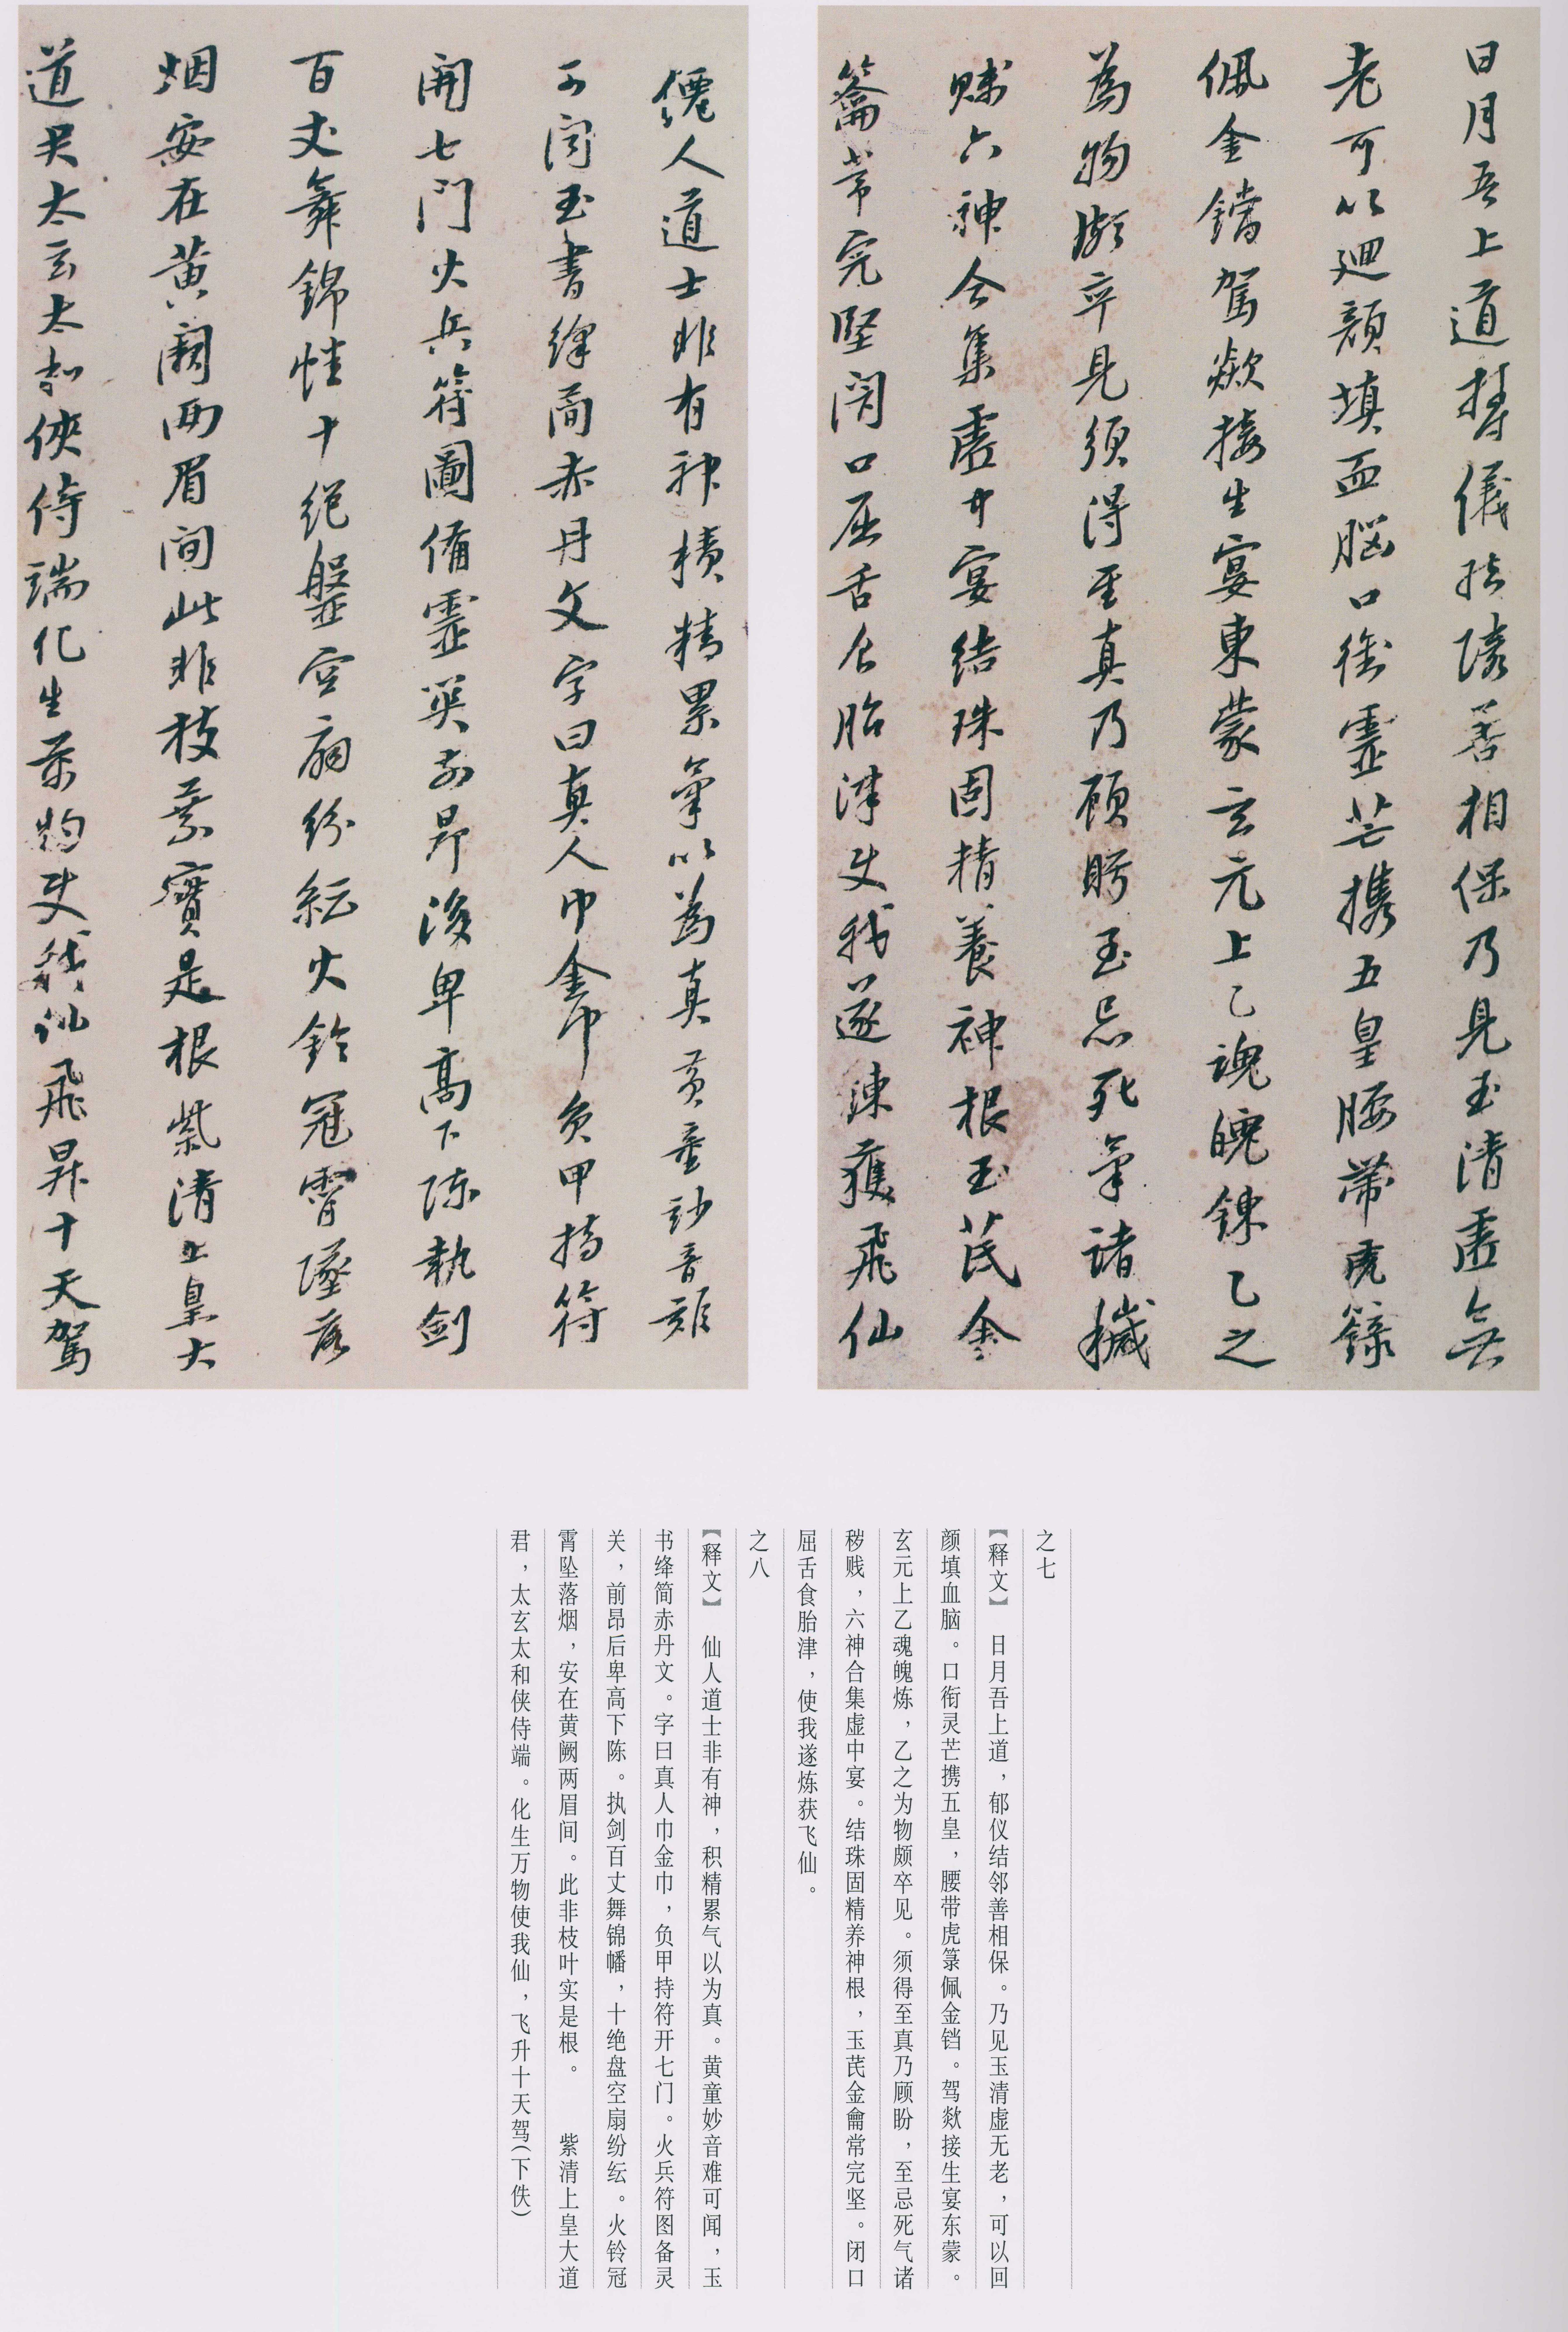 日月吾上道欝儀結隣善相保乃見玉清虛無
老可以廻顏填血腦口銜靈芒携五皇腰帶虎籙
佩金鐺駕欻接生宴東蒙玄元上乙魂魄鍊乙之
為物頗卒見須得至真乃顧眄至忌死氣諸穢
賤六神合集虛中宴結珠固精養神根玉芪金
籥常完堅閉口屈舌食胎津使我遂鍊獲飛仙
僊人道士非有神積精累氣以為真黃童妙音難
可聞玉書絳簡赤丹文字曰真人巾金巾負甲持符
開七門火兵符圖備靈關前昂後卑高下陳執劍
百丈舞錦幡十絕盤空扇紛紜火鈴冠霄墜落
烟安在黃闕兩眉間此非枝葉實是根紫清上皇大
道君太玄太和俠侍端化生萬物使我仙飛昇十天駕
之七
【释文】 日月吾上道，郁仪结邻善相保。乃见玉清虚无老，可以回
颜填血脑。口衔灵芒携五皇，腰带虎箓佩金铛。驾欻接生宴东蒙。
玄元上乙魂魄炼，乙之为物颇卒见。须得至真乃顾盼，至忌死气诸
秽贱，六神合集虚中宴。结珠固精养神根，玉芪金龠常完坚。闭口
屈舌食胎津，使我遂炼获飞仙。
之八
【释文】 仙人道士非有神，积精累气以为真。黄童妙音难可闻，玉
书绛简赤丹文。字曰真人巾金巾，负甲持符开七门。火兵符图备灵
关，前昂后卑高下陈。执剑百丈舞锦幡，十绝盘空扇纷纭。火铃冠
霄坠落烟，安在黄阙两眉间。此非枝叶实是根。 紫清上皇大道
君，太玄太和侠侍端。化生万物使我仙，飞升十天驾(下佚)